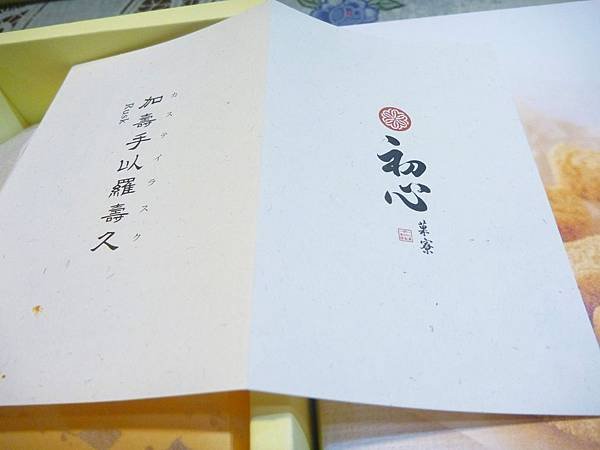 初心
菓寮
カステイラスク
加壽手以羅壽久
Rusk